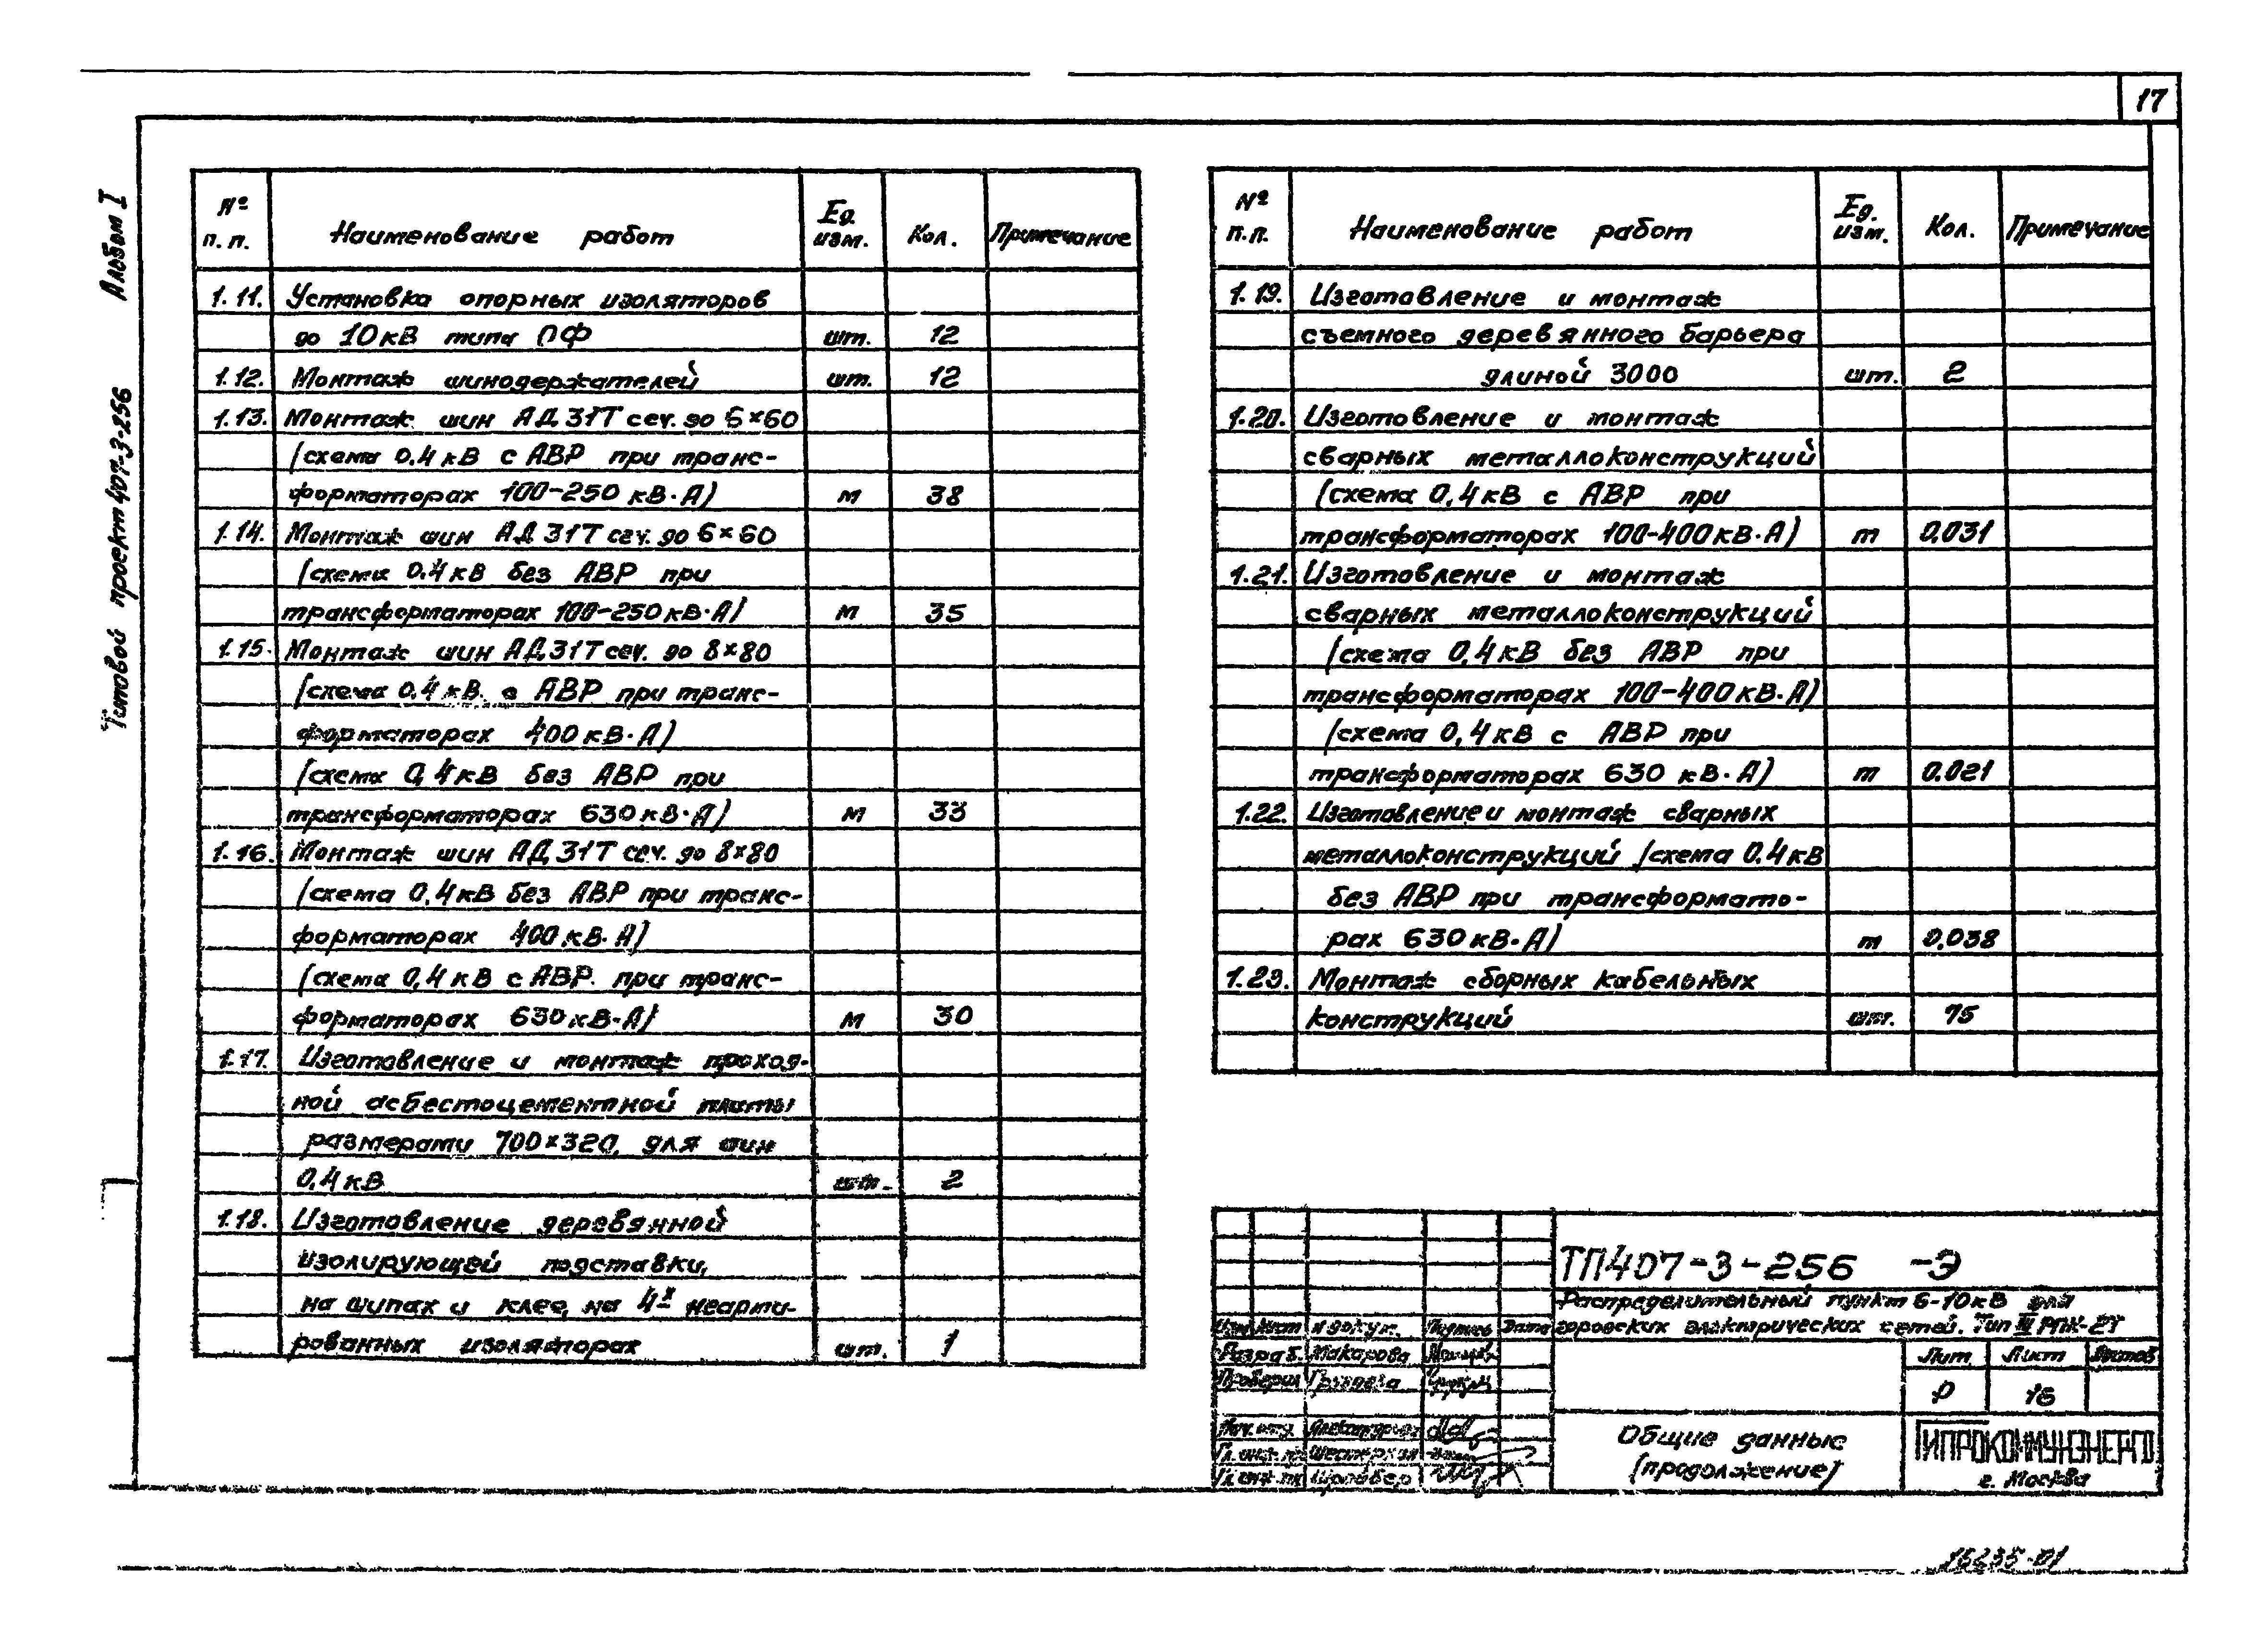 17
Альбом I
Типовой проект 407-3-256
№ п.п. Наименование работ Ед. изм. Кол. Примечание
1.11. Установка опорных изоляторов
до 10 кВ типа ПФ шт. 12
1.12. Монтаж шинодержателей шт. 12
1.13. Монтаж шин АД 31Т сеч. до 6×60
(схема 0.4 кВ с АВР при транс-
форматорах 100-250 кВ·А) м 38
1.14. Монтаж шин АД 31Т сеч. до 6×60
(схема 0.4 кВ без АВР при
трансформаторах 100-250 кВ·А) м 35
1.15. Монтаж шин АД 31Т сеч. до 8×80
(схема 0.4 кВ с АВР при транс-
форматорах 400 кВ·А)
(схема 0,4 кВ без АВР при
трансформаторах 630 кВ·А) м 33
1.16. Монтаж шин АД 31Т сеч. до 8×80
(схема 0,4 кВ без АВР при транс-
форматорах 400 кВ·А)
(схема 0,4 кВ с АВР при транс-
форматорах 630 кВ·А) м 30
1.17. Изготовление и монтаж проход-
ной асбестоцементной плиты
размерами 700×320, для шин
0,4 кВ шт. 2
1.18. Изготовление деревянной
изолирующей подставки,
на шипах и клее, на 4х неарми-
рованных изоляторах шт. 1
№ п.п. Наименование работ Ед. изм. Кол. Примечание
1.19. Изготовление и монтаж
съемного деревянного барьера
длиной 3000 шт. 2
1.20. Изготовление и монтаж
сварных металлоконструкций
(схема 0,4 кВ с АВР при
трансформаторах 100-400 кВ·А) т 0.031
1.21. Изготовление и монтаж
сварных металлоконструкций
(схема 0,4 кВ без АВР при
трансформаторах 100-400 кВ·А)
(схема 0,4 кВ с АВР при
трансформаторах 630 кВ·А) т 0.021
1.22. Изготовление и монтаж сварных
металлоконструкций (схема 0.4 кВ
без АВР при трансформато-
рах 630 кВ·А) т 0,038
1.23. Монтаж сборных кабельных
конструкций шт. 75
ТП 407-3-256 -Э
Распределительный пункт 6-10 кВ для
городских электрических сетей. Тип III РПК-2Т
Изм Лист № докум. Подпись Дата
Разраб. Макарова
Проверил
Лит Лист Листов
Р 16
Общие данные
(продолжение)
ГИПРОКОММУНЭНЕРГО
г. Москва
Нач. отд.
Гл. инж. пр.
Гл. инж. пр. Шрайбер